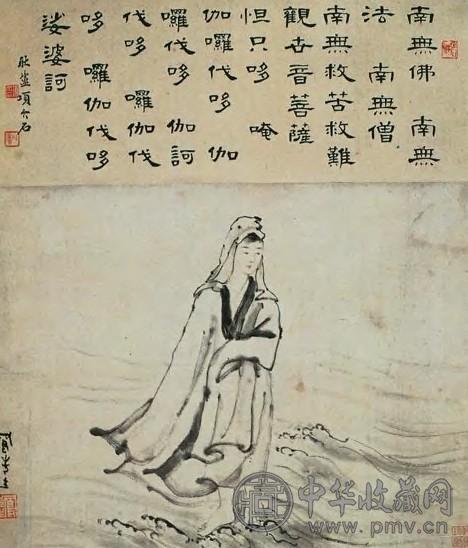 南無佛 南無
法 南無僧
南無救苦救難
觀世音菩薩
怛只哆 唵
伽囉伐哆 伽
囉伐哆 伽訶
伐哆 囉伽伐
哆 囉伽伐哆
娑婆訶
中华收藏网
www.pmv.cn